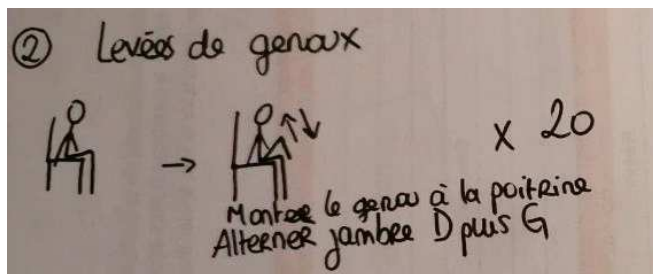 ② Levées de genoux
x 20
Monter le genou à la poitrine
Alterner jambe D puis G